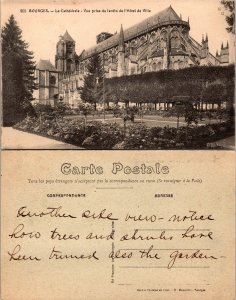 BOURGES
La Cathédrale - Vue prise du Jardin de l'Hôtel de Ville
Carte Postale
Tous les pays étrangers n'acceptent pas la correspondance au verso (Se renseigner à la Poste)
CORRESPONDANCE ADRESSE
Another side view - notice
how trees and shrubs have
been trimed also the garden -